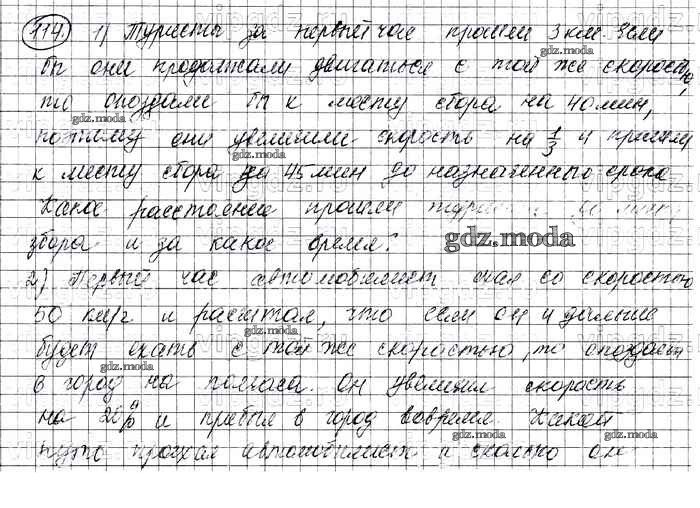 114. 1) Туристы за первый час прошли 3 км. Если
бы они продолжали двигаться с той же скоростью,
то опоздали бы к месту сбора на 40 мин,
поэтому они увеличили скорость на 1/3 и пришли
к месту сбора за 45 мин до назначенного срока
Какое расстояние прошли
сбора и за какое время?
2) Первый час автомобилист ехал со скоростью
50 км/ч и рассчитал, что если он и дальше
будет ехать с той же скоростью, то опоздает
в город на полчаса. Он увеличил скорость
на 20% и прибыл в город вовремя. Какой
путь проехал автомобилист и сколько он
gdz.moda